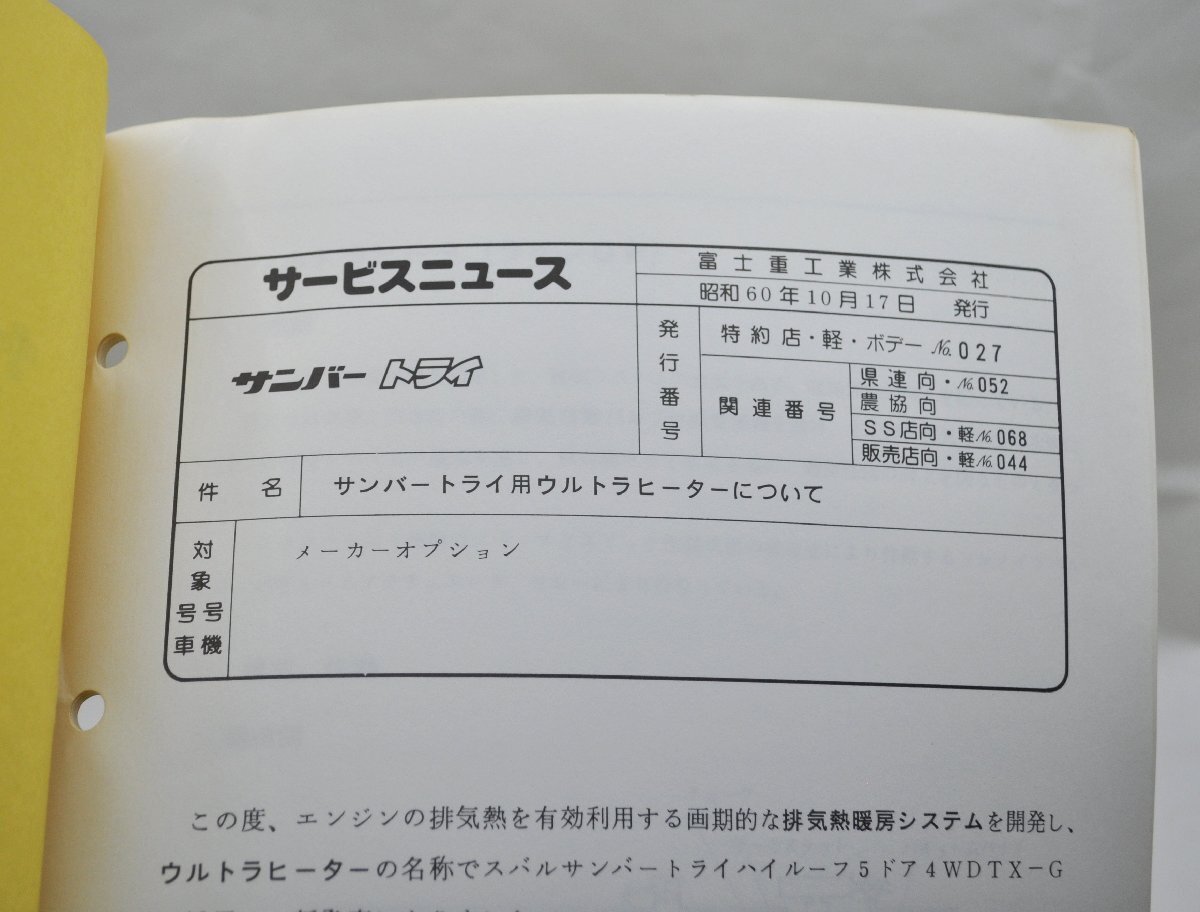 サービスニュース
富士重工業株式会社
昭和60年10月17日 発行
サンバー トライ
発行番号
特約店・軽・ボデー №027
関連番号
県連向・№052
農協向
SS店向・軽№068
販売店向・軽№044
件名
サンバートライ用ウルトラヒーターについて
対象
号号
車機
メーカーオプション
この度、エンジンの排気熱を有効利用する画期的な排気熱暖房システムを開発し、
ウルトラヒーターの名称でスバルサンバートライハイルーフ5ドア4WDTX-G